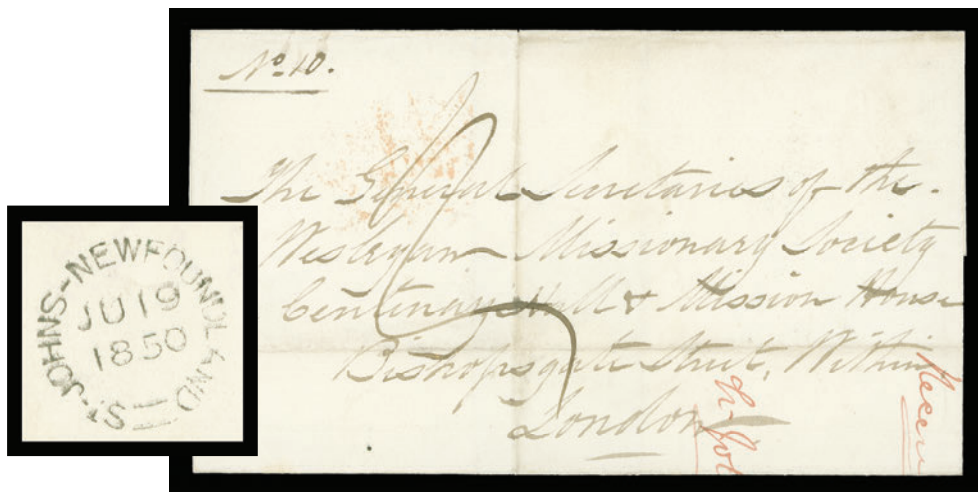 No. 10.
The General Secretaries of the
Wesleyan Missionary Society
Centenary Hall & Mission House
Bishopsgate Street, Within
London
ST. JOHNS-NEWFOUNDLAND
JU 19
1850